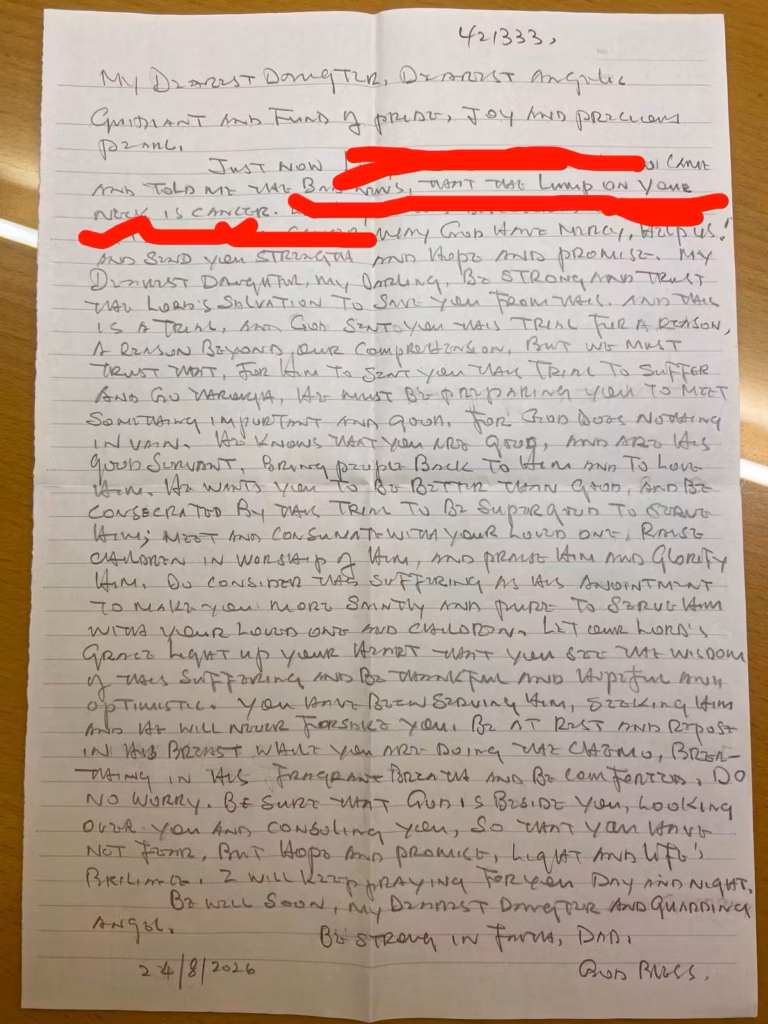 421333,
MY DEAREST DAUGHTER, DEAREST
AND FUND OF PRIDE, JOY AND PRECIOUS
PEARL.
JUST NOW CAME
AND TOLD ME THE THAT THE LUMP ON YOUR
NECK IS CANCER.
MAY GOD HAVE MERCY, HELP US!
AND SEND YOU STRENGTH AND HOPE AND PROMISE. MY
DEAREST DAUGHTER, MY DARLING, BE STRONG AND TRUST
THE LORD'S SALVATION TO SAVE YOU FROM THIS. AND THIS
IS A TRIAL, AND GOD SENT YOU THIS TRIAL FOR A REASON,
A REASON BEYOND OUR COMPREHENSION, BUT WE MUST
TRUST THAT, FOR HIM TO SENT YOU THIS TRIAL TO SUFFER
AND GO THROUGH, HE MUST BE PREPARING YOU TO MEET
SOMETHING IMPORTANT AND GOOD. FOR GOD DOES NOTHING
IN VAIN. HE KNOWS THAT YOU ARE GOOD, AND ARE HIS
GOOD SERVANT, BRING PEOPLE BACK TO HIM AND TO LOVE
HIM. HE WANTS YOU TO BE BETTER THAN GOOD, AND BE
CONSECRATED BY THIS TRIAL TO BE SUPERGOOD TO SERVE
HIM; MEET AND CONSUMATE WITH YOUR LOVED ONE, RAISE
CHILDREN IN WORSHIP OF HIM, AND PRAISE HIM AND GLORIFY
HIM. DO CONSIDER THIS SUFFERING AS HIS ANOINTMENT
TO MAKE YOU MORE SAINTLY AND PURE TO SERVE HIM
WITH YOUR LOVED ONE AND CHILDREN. LET OUR LORD'S
GRACE LIGHT UP YOUR HEART THAT YOU SEE THE WISDOM
OF THIS SUFFERING AND BE THANKFUL AND HOPEFUL AND
OPTIMISTIC. YOU HAVE BEEN SERVING HIM, SEEKING HIM
AND HE WILL NEVER FORSAKE YOU. BE AT REST AND REPOSE
IN HIS BREAST WHILE YOU ARE DOING THE CHEMO, BREA-
THING IN HIS FRAGRANT BREATH AND BE COMFORTED, DO
NO WORRY. BE SURE THAT GOD IS BESIDE YOU, LOOKING
OVER YOU AND CONSOLING YOU, SO THAT YOU HAVE
NOT FEAR, BUT HOPE AND PROMISE, LIGHT AND LIFE'S
BRILIANCE. I WILL KEEP PRAYING FOR YOU DAY AND NIGHT.
BE WELL SOON, MY DEAREST DAUGHTER AND GUARDING
ANGEL.
BE STRONG IN FAITH, DAD.
24/8/2026
GOD BLESS.